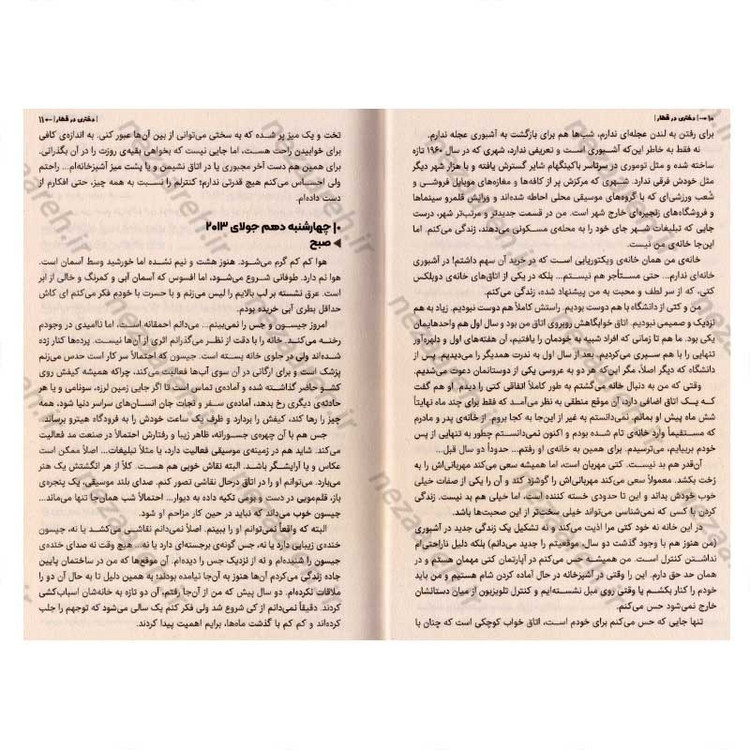 ۱۰ | دختری در قطار
برای رفتن به لندن عجله‌ای ندارم، شب‌ها هم برای بازگشت به آشبوری عجله ندارم.
نه فقط به خاطر این‌که آشبوری است و تعریفی ندارد، شهری که در سال ۱۹۶۰ تازه
ساخته شده و مثل توموری در سرتاسر باکینگهام شایر گسترش یافته و با هزار شهر دیگر
مثل خودش فرقی ندارد. شهری که مرکزش پر از کافه‌ها و مغازه‌های موبایل فروشی و
شُعب ورزشی‌ای که با گروه‌های موسیقی محلی احاطه شده‌اند و ورایش قلمرو سینماها
و فروشگاه‌های زنجیره‌ای خارج شهر است. من در قسمت جدیدتر و مرتب‌تر شهر، درست
جایی که تبلیغات شهر جای خود را به محله‌ی مسکونی می‌دهند، زندگی می‌کنم. اما
این‌جا خانه‌ی من نیست.
خانه‌ی من همان خانه‌ی ویکتوریایی است که در خرید آن سهم داشتم! در آشبوری
خانه‌ای ندارم... حتی مستأجر هم نیستم... بلکه در یکی از اتاق‌های خانه‌ی دوبلکس
کتی، که از سر لطف و محبت به من پیشنهاد شده، زندگی می‌کنم.
من و کتی از دانشگاه با هم دوست بودیم. راستش کاملاً هم دوست نبودیم. زیاد به هم
نزدیک و صمیمی نبودیم. اتاق خوابگاهش روبروی اتاق من بود و سال اول هم واحدهایمان
یکی بود. ما هم تا زمانی که افراد شبیه به خودمان را یافتیم، آن هفته‌های اول و دلهره‌آور
تنهایی را با هم سپری می‌کردیم. بعد از سال اول به ندرت همدیگر را می‌دیدیم. پس از
دانشگاه که دیگر اصلاً، مگر این‌که هر دو به عروسی یکی از دوستانمان دعوت می‌شدیم.
وقتی که من به دنبال خانه می‌گشتم به طور کاملاً اتفاقی کتی را دیدم. او هم گفت
که یک اتاق اضافی دارد، آن موقع منطقی به نظر می‌آمد که فقط برای چند ماه نهایتاً
شش ماه پیش او بمانم. نمی‌دانستم به غیر از این‌جا به کجا بروم. از خانه‌ی پدر و مادرم
که مستقیماً وارد خانه‌ی تام شده بودم و اکنون نمی‌دانستم چطور به تنهایی از پس
خودم بربیایم، می‌ترسیدم. برای همین به خانه‌ی او رفتم... حدوداً دو سال قبل...
آن‌قدر هم بد نیست. کتی مهربان است، اما همیشه سعی می‌کند مهربانی‌اش را به
رُخت بکشد. معمولاً سعی می‌کند مهربانی‌اش را گوشزد کند و آن را یکی از صفات خیلی
خوب خودش بداند و این تا حدودی خسته کننده است، اما خیلی هم بد نیست. زندگی
کردن با کسی که نمی‌شناسی می‌تواند خیلی سخت‌تر از این صحبت‌ها باشد.
در این خانه نه خود کتی مرا اذیت می‌کند و نه تشکیل یک زندگی جدید در آشبوری
(من هنوز هم با وجود گذشت دو سال، موقعیتم را جدید می‌دانم) بلکه دلیل ناراحتی‌ام
نداشتن کنترل است. من همیشه حس می‌کنم در آپارتمان کتی مهمان هستم و در
همان حد حق دارم. این را وقتی در آشپزخانه در حال آماده کردن شام هستیم و من باید
خودم را کنار بکشم یا وقتی روی مبل نشسته‌ایم و کنترل تلویزیون از میان دستانشان
خارج نمی‌شود حس می‌کنم.
تنها جایی که حس می‌کنم برای خودم است، اتاق خواب کوچکی است که چنان با
دختری در قطار | ۱۱
تخت و یک میز پر شده که به سختی می‌توانی از بین آن‌ها عبور کنی. به اندازه‌ی کافی
برای خوابیدن راحت هست، اما جایی نیست که بخواهی بقیه‌ی روزت را در آن بگذرانی.
برای همین هم دست آخر مجبوری یا در اتاق نشیمن و یا پشت میز آشپزخانه‌ام... راحتم
ولی احساس می‌کنم هیچ قدرتی ندارم؛ کنترلم را نسبت به همه چیز، حتی افکارم از
دست داده‌ام.
چهارشنبه دهم جولای ۲۰۱۳
صبح
هوا کم کم گرم می‌شود. هنوز هشت و نیم نشده اما خورشید وسط آسمان است.
هوا نم دارد. طوفانی شروع می‌شود، اما افسوس که آسمان آبی و کمرنگ و خالی از ابر
است. عرق نشسته بر لب بالایم را لیس می‌زنم و با حسرت با خودم فکر می‌کنم ای کاش
حداقل بطری آبی خریده بودم.
امروز جیسون و جس را نمی‌بینم... می‌دانم احمقانه است، اما ناامیدی در وجودم
رخنه می‌کند. خانه را با دقت از نظر می‌گذرانم اثری از آن‌ها نیست. پرده‌ها کنار زده
شده‌اند ولی در جلوی خانه بسته است. جیسون که احتمالاً سر کار است حدس می‌زنم
پزشک است و برای ارگانی در آن سوی آب‌ها فعالیت می‌کند، چراکه همیشه کیفش روی
کشو حاضر گذاشته شده و آماده‌ی تماس است تا اگر جایی زمین لرزه، سونامی و یا هر
حادثه‌ی دیگری رخ بدهد، آماده‌ی سفر و نجات جان انسان‌های سراسر دنیا شود، همه
چیز را رها کند، کیفش را بردارد و ظرف یک ساعت خودش را به فرودگاه هیترو برساند.
جس هم با آن چهره‌ی جسورانه، ظاهر زیبا و رفتارش احتمالاً در صنعت مد فعالیت
می‌کند. شاید هم در زمینه‌ی موسیقی فعالیت دارد، یا مثلاً تبلیغات... اصلاً ممکن است
عکاس و یا آرایشگر باشد. البته نقاش خوبی هم است. کلاً از هر انگشتش یک هنر
می‌بارد. می‌توانم او را در اتاق درحال نقاشی تصور کنم. صدای بلند موسیقی، یک پنجره‌ی
باز، قلم‌مویی در دست و بومی تکیه داده به دیوار... احتمالاً شب همان‌جا تنها می‌ماند...
جیسون خوب می‌داند که نباید در حین کار مزاحم او شود.
البته که واقعاً نمی‌توانم او را ببینم. اصلاً نمی‌دانم نقاشی می‌کشد یا نه، جیسون
خنده‌ی زیبایی دارد یا نه، جس گونه‌ی برجسته‌ای دارد یا نه... هیچ وقت نه صدای خنده‌ی
جیسون را شنیده‌ام و نه از نزدیک جس را دیده‌ام. آن موقع‌ها که من در ساختمان پایین
جاده زندگی می‌کردم آن‌ها هنوز به آن‌جا نیامده بودند؛ به همین دلیل تا به حال آن دو را
ملاقات نکرده‌ام. دو سال پیش که من از آن‌جا رفتم، آن دو تازه به خانه‌شان اسباب‌کشی
کردند. دقیقاً نمی‌دانم از کی شروع شد ولی فکر کنم یک سالی می‌شود که توجهم را جلب
کرده‌اند و کم کم با گذشت ماه‌ها، برایم اهمیت پیدا کردند.
nezareh.ir